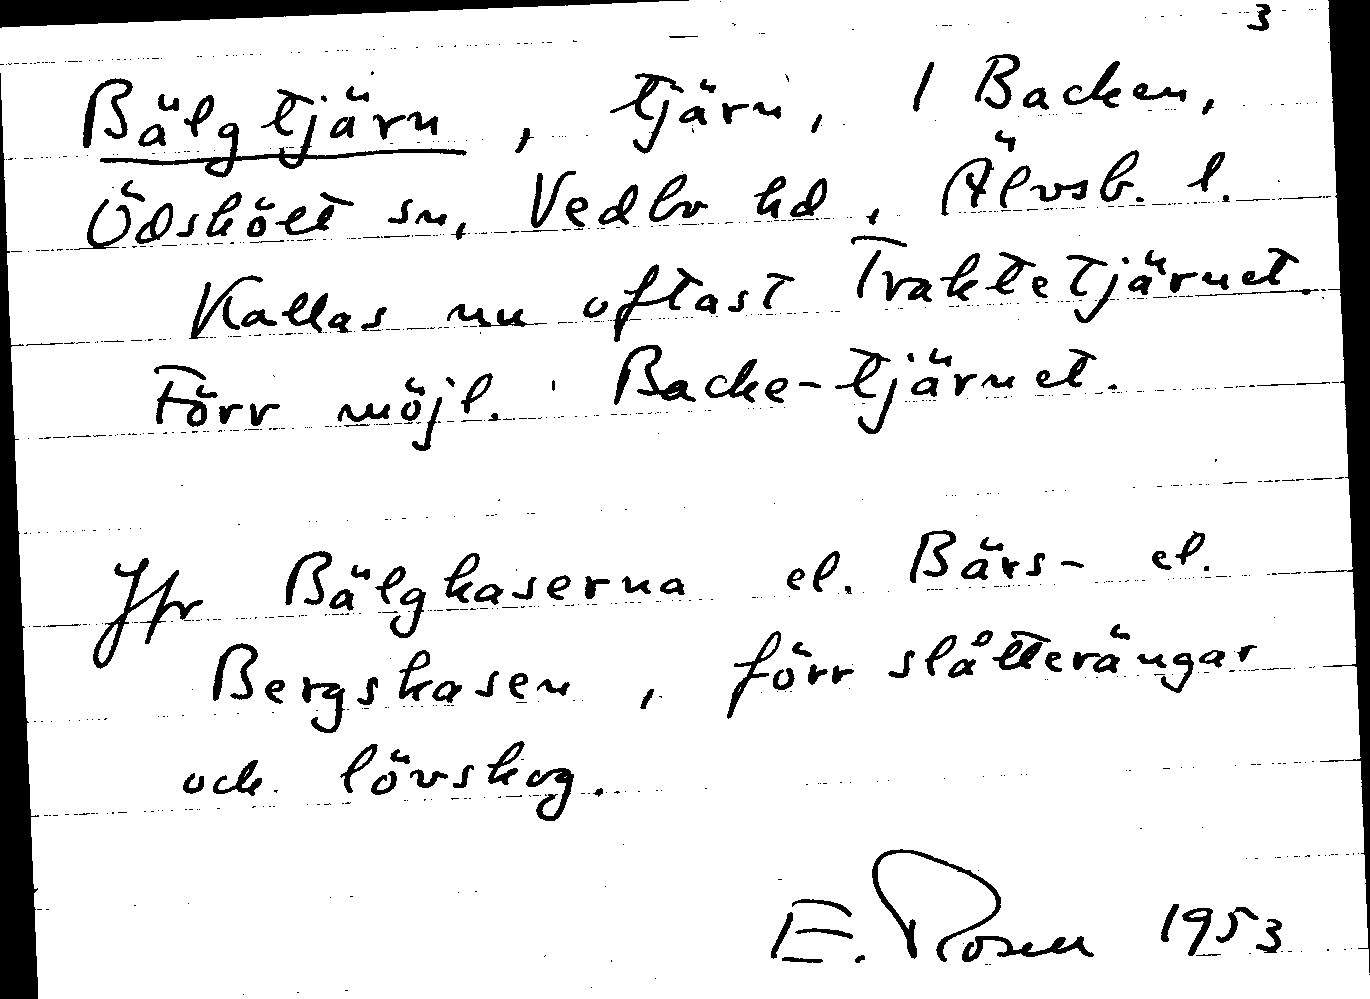 3
Bälgtjärn, tjärn, 1 Backen,
Ödskölt sn, Vedbo hd, Älvsb. l.
Kallas nu oftast Traktetjärnet.
Förr möjl. Backe-tjärnet.
Jfr Bälgkaserna el. Bärs- el.
Bergskasen, förr slåtterängar
och lövskog.
E. Rosen 1953